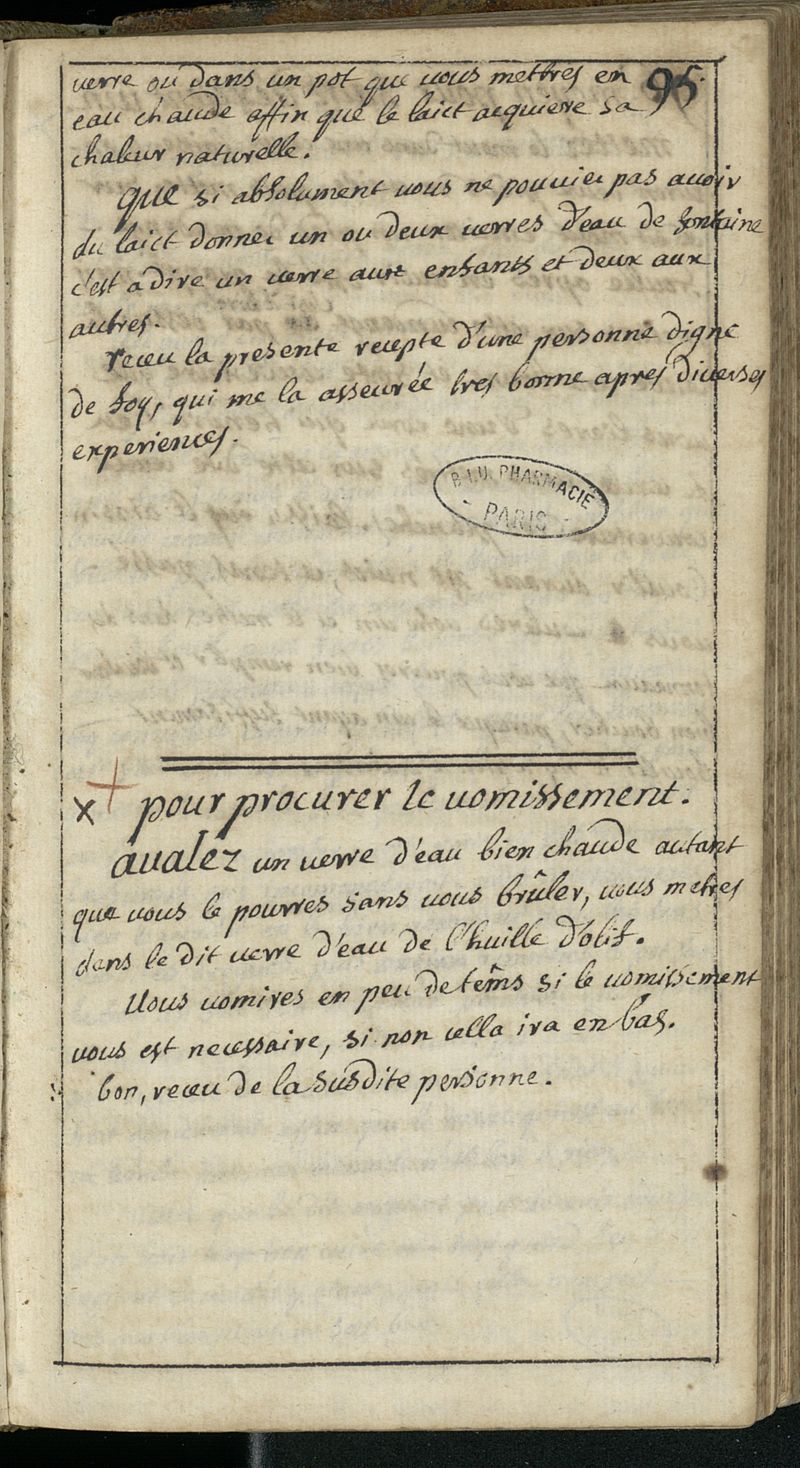 95.
verre ou dans un pot que vous mettres en
eau chaude affin que le laict acquiere sa
chaleur naturelle.
que si absolument vous ne pouviez pas avoir
du laict donnez un ou deux verres d'eau de fontaine
c'est a dire un verre aux enfants et deux aux
autres.
receu la presente recepte d'une personne digne
de foy, qui me la asseurée tres bonne apres diverses
experiences.
B.I.U. PHARMACIE
- PARIS -
x + pour procurer le vomissement.
avalez un verre d'eau bien chaude autant
que vous le pourres sans vous brûler, vous metres
dans le dit verre d'eau de l'huille d'olif.
Vous vomires en peu de têms si le vomissement
vous est necessaire, si non cella ira en bas.
bon, receu de la susdite personne.